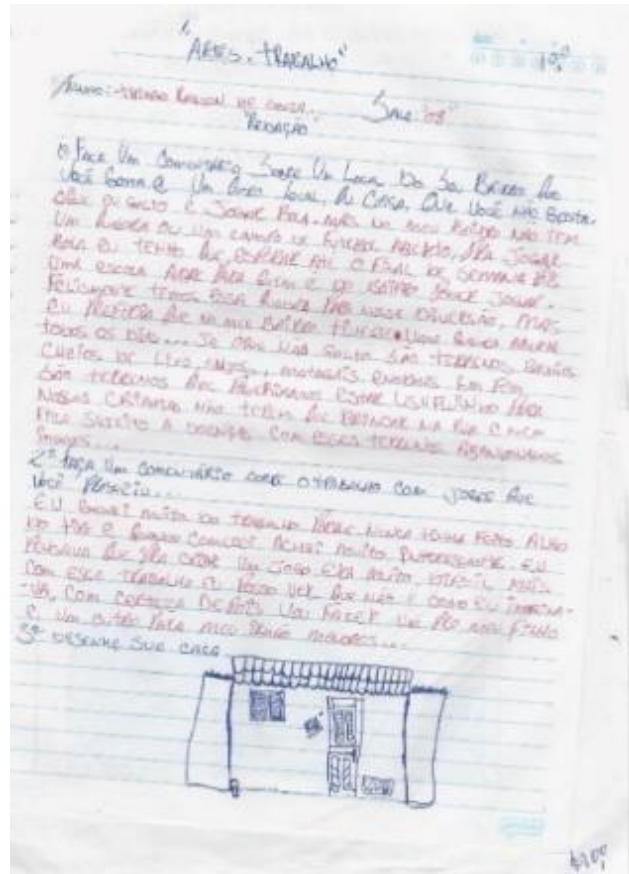 "ARTES-TRABALHO"
10,0
Aluno: THIAGO RAMON DE Sala "08"
REDAÇÃO
FAÇA Um Comentário Sobre Um Local Do Seu Bairro Que
Você Gosta e Um Outro Local, Ou CASA, QUE Você NÃO GOSTA.
QUE EU GOSTO É JOGAR BOLA. MAS NO MEU BAIRRO NÃO TEM
UM QUADRA OU UM CAMPO DE FUTEBOL ABERTO, PRA JOGAR
BOLA EU TENHO QUE ESPERAR ATÉ O FINAL DE SEMANA
UMA ESCOLA ABRE PARA QUEM É DO BAIRRO JOGAR.
FELIZMENTE TEMOS ESSA QUADRA PARA NOSSA DIVERSÃO, MAS
EU PREFERIA QUE NO MEU BAIRRO TIVESSE UMA QUADRA ABERTA
TODOS OS DIAS... JÁ O QUE NÃO GOSTO SÃO TERRENOS BALDIOS
CHEIOS DE LIXO, MATAGAIS ENORMES
SÃO TERRENOS QUE PODERIAMOS ESTAR USUFLUINDO PARA
NOSSAS CRIANÇAS NÃO TEREM QUE BRINCAR NA RUA E
FICA SUJEITO A DOENÇAS COM ESSES TERRENOS ABANDONADOS
2º FAÇA UM COMENTÁRIO SOBRE O TRABALHO COM JOGOS QUE
VOCÊ
EU GOSTEI MUITO DO TRABALHO PORQUE NUNCA TINHA FEITO ALGO
DO TIPO E QUANDO COMECEI ACHEI MUITO INTERESSANTE. EU
PENSAVA QUE PRA CRIAR UM JOGO ERA MUITO DIFICIL MAIS
COM ESSE TRABALHO EU POSSO VER QUE NÃO É COMO EU IMAGINA-
VA, COM CERTEZA DEPOIS VOU FAZER UM PRO MEU FILHO
E UM OUTRO PARA MEU IRMÃO MENOR...
3º DESENHE SUA CASA
10,0